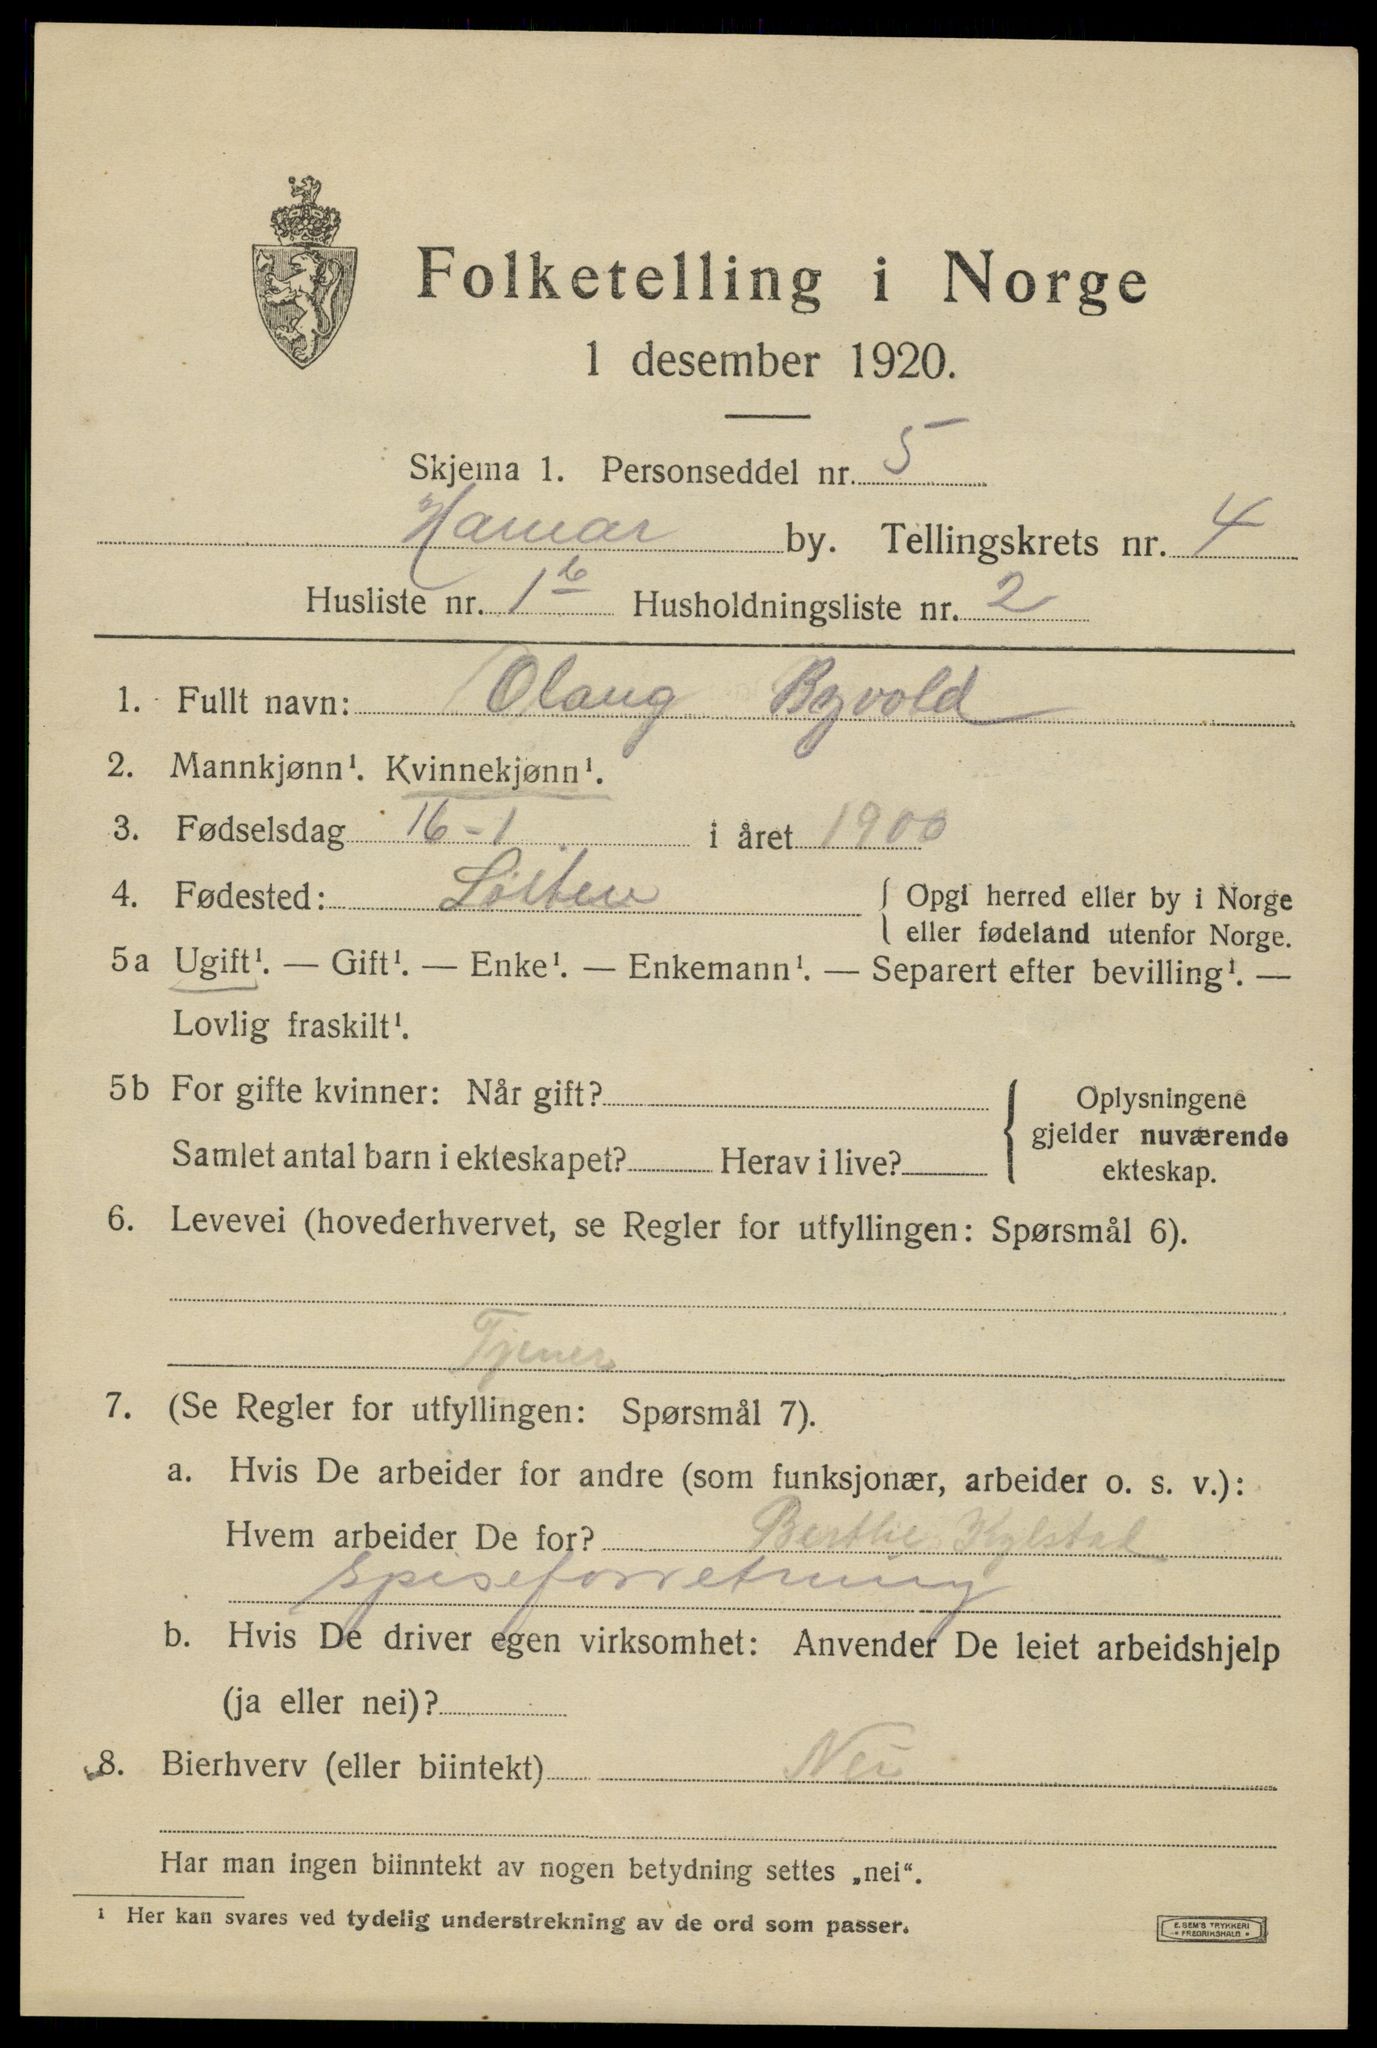 Folketelling i Norge
1 desember 1920.
Skjema 1. Personseddel nr. 5
Hamar by. Tellingskrets nr. 4
Husliste nr. 1b Husholdningsliste nr. 2
1. Fullt navn: Olaug Byvold
2. Mannkjønn¹. Kvinnekjønn¹.
3. Fødselsdag 16-1 i året 1900
4. Fødested: Löiten { Opgi herred eller by i Norge
eller fødeland utenfor Norge.
5a Ugift¹. — Gift¹. — Enke¹. — Enkemann¹. — Separert efter bevilling¹. —
Lovlig fraskilt¹.
5b For gifte kvinner: Når gift? { Oplysningene
gjelder nuværende
Samlet antal barn i ekteskapet? Herav i live?
ekteskap.
6. Levevei (hovederhvervet, se Regler for utfyllingen: Spørsmål 6).
Tjener
7. (Se Regler for utfyllingen: Spørsmål 7).
a. Hvis De arbeider for andre (som funksjonær, arbeider o. s. v.):
Hvem arbeider De for? Berthe Kylstad
spiseforretning
b. Hvis De driver egen virksomhet: Anvender De leiet arbeidshjelp
(ja eller nei)?
8. Bierhverv (eller biintekt) Nei
Har man ingen biinntekt av nogen betydning settes „nei“.
¹ Her kan svares ved tydelig understrekning av de ord som passer.
E. SEM'S TRYKKERI
* FREDRIKSHALD *